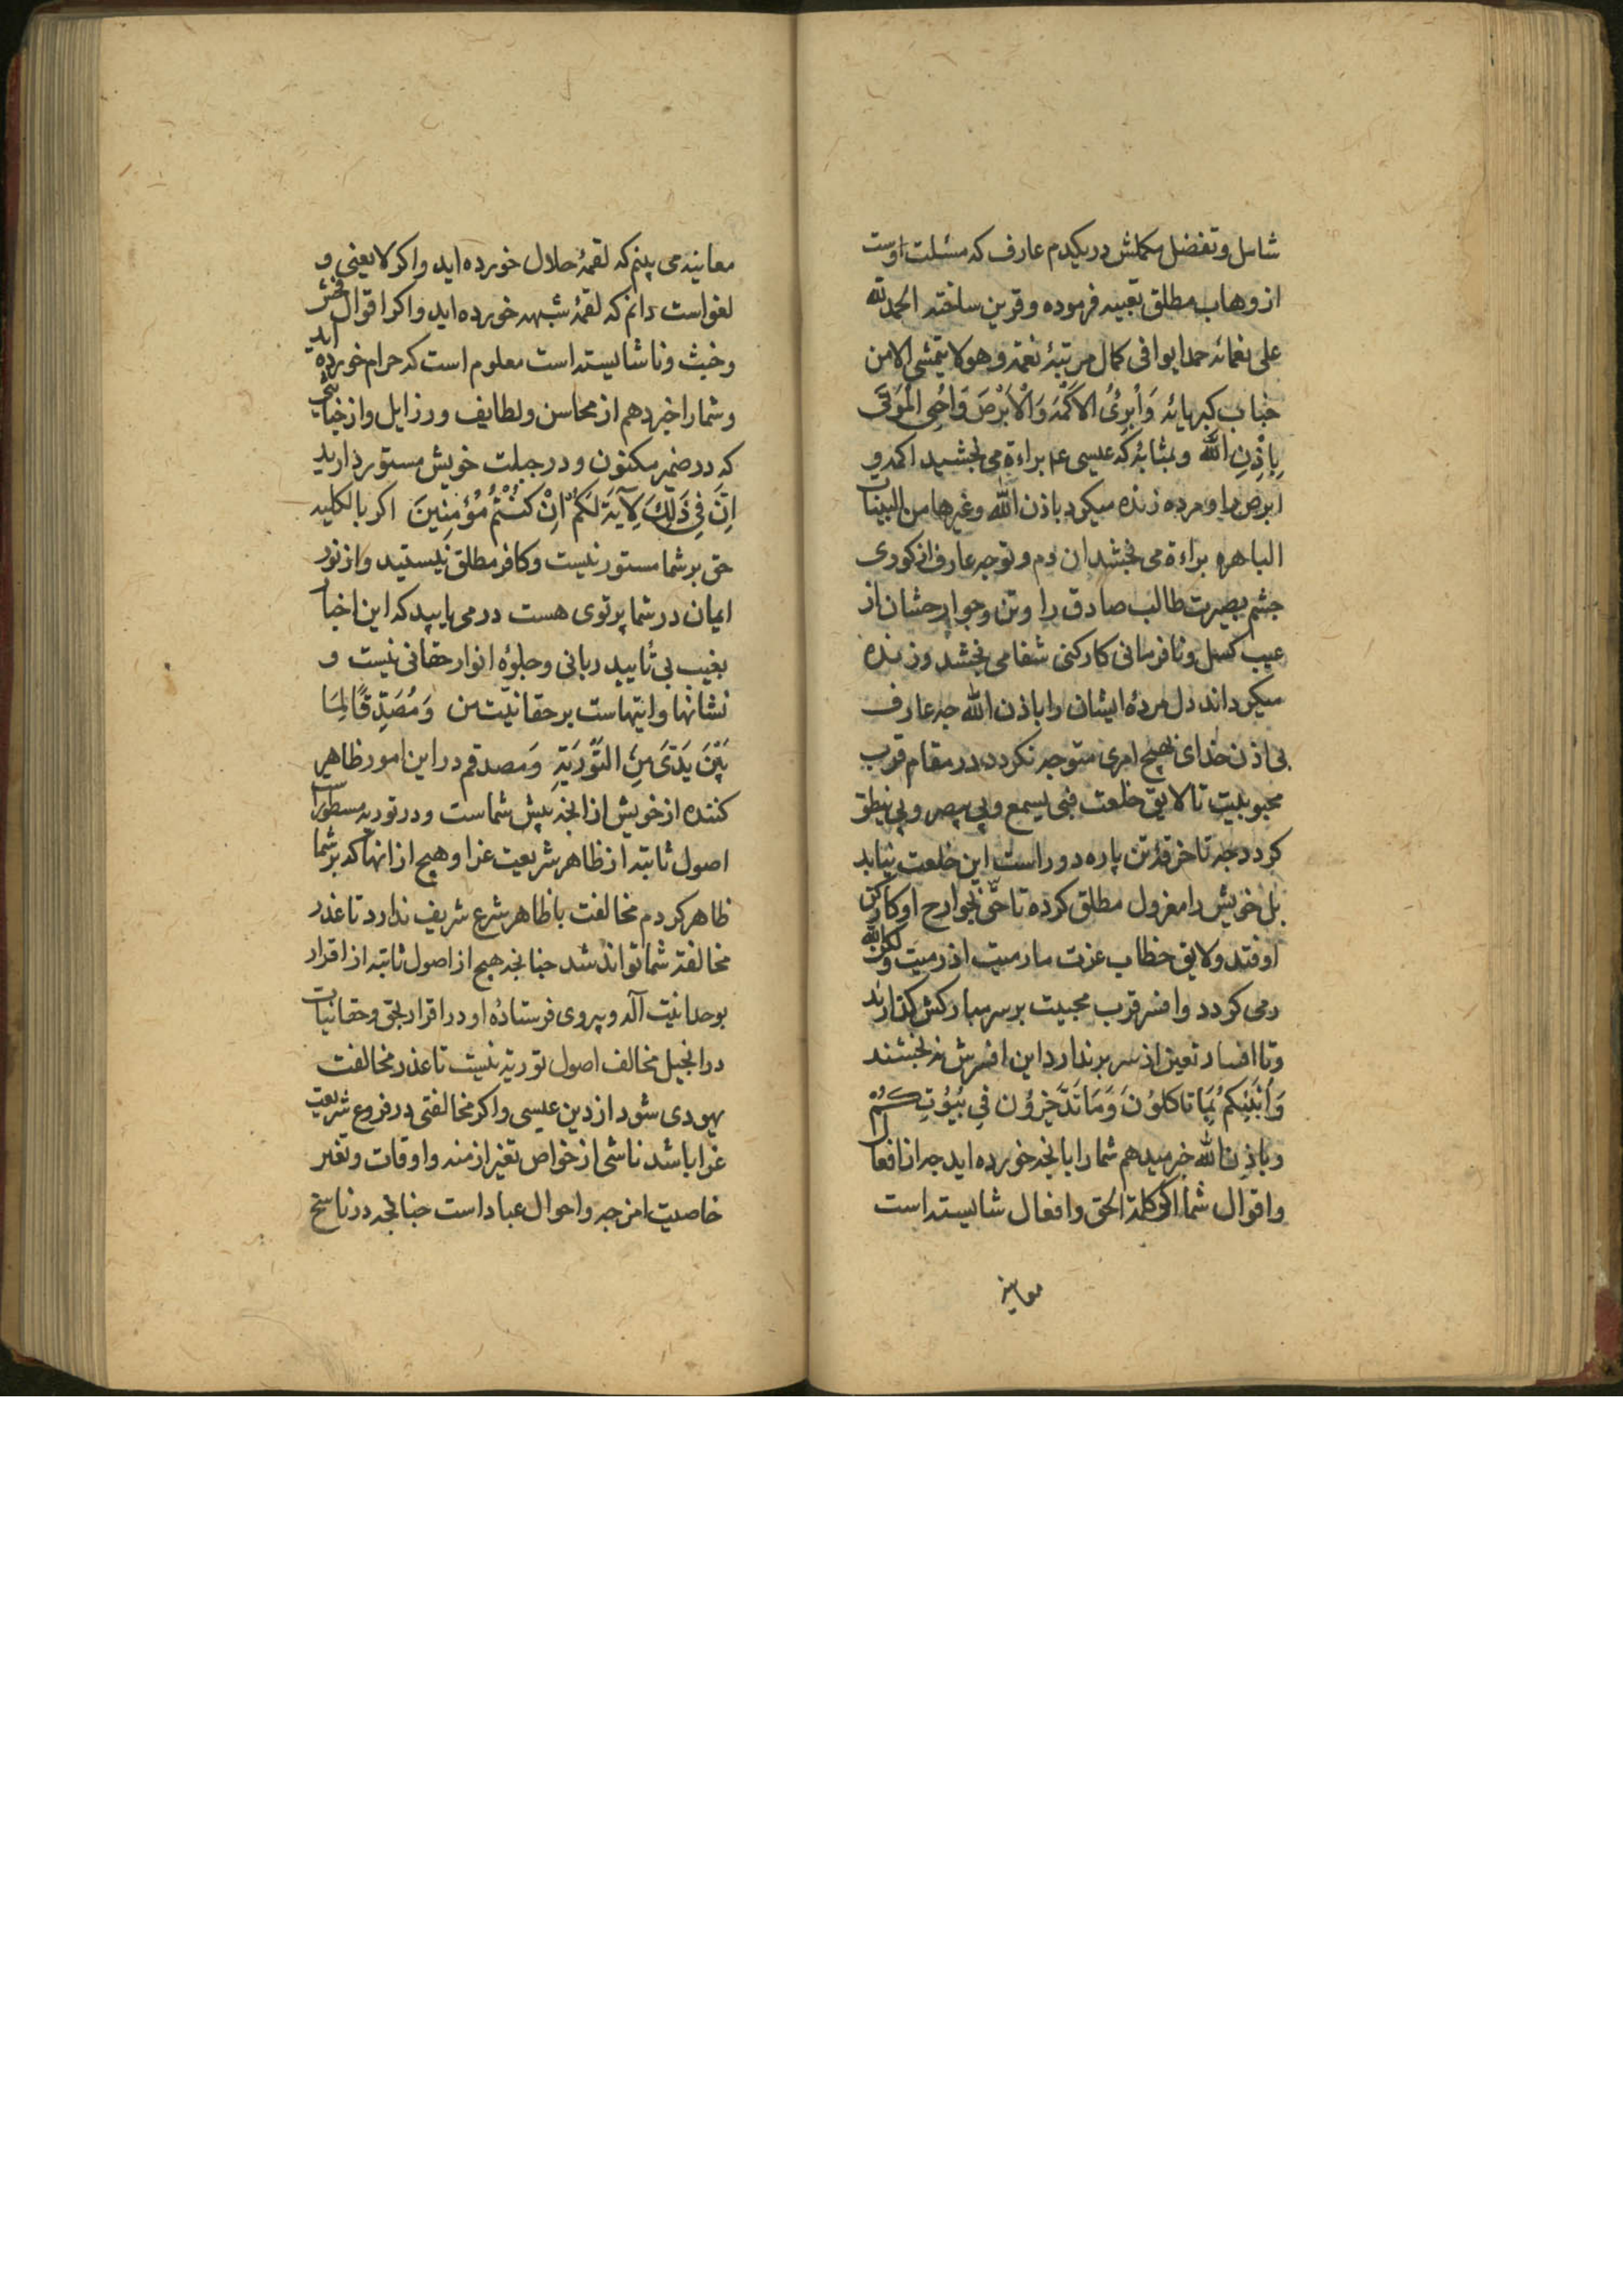 شامل و تفضل مکملش در یکدم عارف که مسئلت اوست
از وهاب مطلق تعبیه فرموده و قرین ساخته الحمد لله
علی نعمائه حمدا یوافی کمال مرتبۀ نعمه و هو لا یتمشی الا من
جناب کبریائه وَاُبرِئُ الاَکْمَهَ وَالْاَبْرَصَ وَاُحیِ الْمَوْتَی
بِاِذْنِ اللّٰه و بمثابۀ که عیسی ع براءة می بخشید اکمه و
ابرص را و مرده زنده میکرد باذن الله و غیرها من البینات
الباهره براءة می بخشد ان دم و توجه عارف از کوری
چشم بصیرت طالب صادق را و تن و جوارحشان از
عیب کسل و نافرمانی کارکنی شفا می بخشد و زنده
میکرداند دل مردۀ ایشان را باذن الله چه عارف
بی اذن خدای بهیچ امری متوجه نکردد در مقام قرب
محبوبیت تا لایق خلعت فبی یسمع و بی یبصر و بی ینطق
کردد چه تا خرقۀ تن پاره دور است این خلعت نیابد
بل خویش را معزول مطلق کرده تا حق بجوارح او کارکن
اوفتد و لایق خطاب عزت ما رمیت اذ رمیت ولکن الله
رمی کردد و افسر قرب محبیت بر سر مبارکش کذارند
و تا افسار تعین از سر بر ندارد این افسرش نبخشند
وَاُنَبِّئُکُمْ بِمَا تَاکُلوُنَ وَمَا تَدَّخِرُوُن فِی بُیُوُتِکُمْ
و باذن الله خبر میدهم شما را بانچه خورده اید چه از افعال
و اقوال شما اکر کلمة الحق و افعال شایسته است
معاینه
معاینه می بینم که لقمۀ حلال خورده اید و اکر لا یعنی و
لغو است دانم که لقمۀ شبهه خورده اید و اکر اقوال فحش
و خبث و ناشایسته است معلوم است که حرام خورده اید
و شما را خبر دهم از محاسن و لطایف و رزایل و از خبائثی
که در ضمیر مکنون و در جبلت خویش مستور دارید
اِنَّ فِی ذَلِکَ لِآیَةَ لَکُمْ اِنْ کُنْتُمْ مُؤْمِنِینَ اکر بالکلیه
حق بر شما مستور نیست و کافر مطلق نیستید و از نور
ایمان در شما پرتوی هست در می یابید که این اخبار
بغیب بی تأیید ربانی و جلوۀ انوار حقانی نیست و
نشانها و ایتهاست بر حقانیّت من وَمُصَدِّقًا لِمَا
بَیْنَ یَدَیَّ مِنَ التَّوْرَیةِ وَمصدقم در این امور ظاهر
کننده از خویش از انچه پیش شماست و در توریه مسطور از
اصول ثابته از ظاهر شریعت غرا و هیچ از انها که بر شما
ظاهر کردم مخالفت با ظاهر شرع شریف ندارد تا عذر
مخالفة شما تواند شد چنانچه هیچ از اصول ثابته از اقرار
بوحدانیت آله و پیروی فرستادۀ او در اقرار بحق و حقانیات
در انجیل مخالف اصول توریة نیست تا عذر مخالفت
یهودی شود از دین عیسی و اکر مخالفتی در فروع شریعت
غرا باشد ناشی از خواص تغیر ازمنه و اوقات و تغیر
خاصیت امزجه و احوال عباد است چنانچه در ناسخ